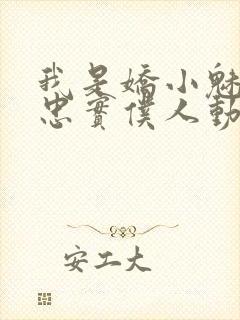 我是嬌小魅
忠實僕人動
安工大